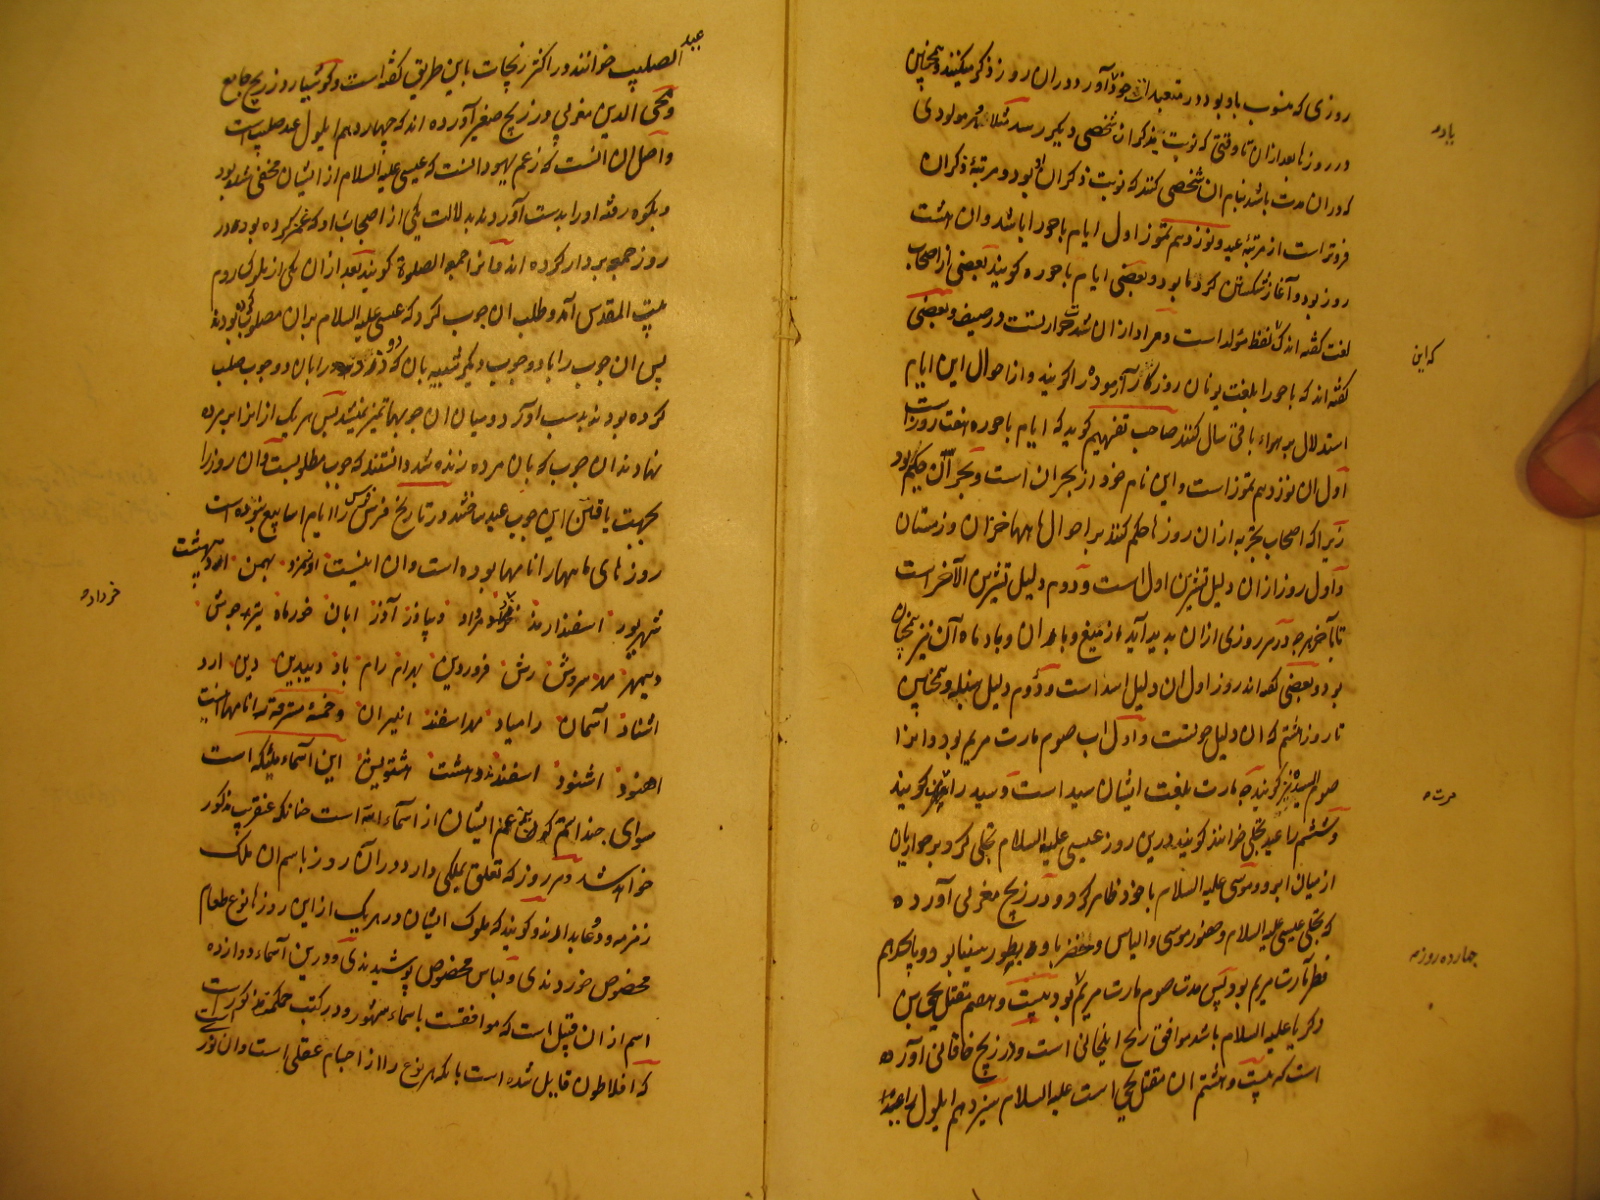 روزی که منسوب باو بود در متعبدات خود آورد دران روز ذکر میکنند و همچنین
در روزها بعد ازان تا وقتی که نوبت بذکران شخصی دیگر رسد مثلا هر مولودی
که دران مدت باشد بنام ان شخصی کنند که نوبت ذکران او بود و مرتبهٔ ذکران
فروتر است از مرتبهٔ عید و نوزدهم تموز اول ایام باحورا باشد وان هشت
روز بود و آغاز شکستن گرما بود و بعضی ایام باحوره گویند بعضی از اصحاب
لغت گفته اند که لفظ مولد است و مراد ازان شدت حرارتست در صیف و بعضی
گفته اند که باحورا بلغت یونان روزگار آزموده را گویند و از احوال این ایام
استدلال بر هواء باقی سال کنند صاحب تفهیم گوید که ایام باحوره هفت روز است
اول ان نوزدهم تموز است واین نام خود از بحران است و بحران حکم بود
زیراکه اصحاب تجربه ازان روزها حکم کنند بر احوال ماهها خزان و زمستان
و اول روز ازان دلیل تشرین اول است و دوم دلیل تشرین الآخر است
تا بآخر هرچه در هر روزی ازان بدید آید از میغ و باران و باد ماه آن نیز همچنان
بود و بعضی گفته اند روز اول ان دلیل اسد است و دوم دلیل سنبله و همچنین
تا روز هشتم که ان دلیل حوتست و اول اب صوم مارت مریم بود و انرا
صوم السیده نیز گویند چه مارت بلغت ایشان سیده است و سید را مار گویند
و ششم را عید تجلی خوانند گویند درین روز عیسی علیه السلام تجلی کرد بر حواریان
از میان ابر و موسی علیه السلام با خود ظاهر کرد و در زیج مغربی آورده
که تجلی عیسی علیه السلام و حضور موسی و الیاس و خضر با وی بطور سینا بود و پانزدهم
فطر مارت مریم بود پس مدت صوم مارت مریم بود بیست و نهم مقتل یحیی بن
زکریا علیه السلام باشد موافق زیج ایلخانی است و در زیج خاقانی آورده
است که بیست و هشتم ان مقتل یحیی است علیه السلام سیزدهم ایلول را عید
بادم
که این
مرت
چهارده روزه
عید
الصلیب خوانند در اکثر زیجات باین طریق گفته است و کوشیار در زیج جامع
و محی الدین مغربی در زیج صغیر آورده اند که چهاردهم ایلول عید صلیب است
و اصل ان انست که زعم یهود انست که عیسی علیه السلام از ایشان مخفی شده بود
و بکوه رفته او را بدست آوردند بدلالت یکی از اصحاب او که غمز کرده بود در
روز جمعه بردار کرده اند و انرا جمعه الصلوة گویند بعد ازان یکی از ملوک روم
بیت المقدس آمد و طلب ان چوب کرد که عیسی علیه السلام بران مصلوب کرده بودند
پس ان چوب را با دو چوب دیگر شبیه بان که دو دزد را بان دو چوب صلب
کرده بودند بدست آورد و میان ان چوبها تمیز نمیشد پس هر یک از انرا بر مرده
نهادند ان چوب که بان مرده زنده شد دانستند که چوب مطلوبست و ان روز را
بجهت یافتن این چوب عید ساختند و در تاریخ فرس را ایام اسابیع نبوده است
روزهای ماهها را نامها بوده است وان اینست اورمزد بهمن اردیبهشت
شهریور اسفندارمذ خرداد مرداد دیباذر آذر ابان خور ماه تیر جوش
دیبمهر مهر سروش رش فروردین بهرام رام باذ دیبدین دین ارد
اشتاذ آسمان رامیاد مهراسفند انیران و خمسهٔ مسترقه را نامها اینست
اهنود اشنود اسفندمذ وهشت هشتویش این آسماء ملئکه است
سوای چند اسم که ان بزعم ایشان از آسماء الله است چنانکه عنقریب مذکور
خواهد شد و هر روز که تعلق بملکی دارد دران روز باسم ان ملک
زمزمه و دعا بدارند و گویند که ملوک ایشان در هر یک از این روزها نوع طعام
مخصوص خوردندی و لباس مخصوص پوشیدندی و درین آسماء دوازده
اسم ازان قبیل است که موافقست باسماء شهور و در کتب حکمت مذکور است
که افلاطون قایل شده است بانکه هر نوع را از اجسام عقلی است وان نوری است
خرداد